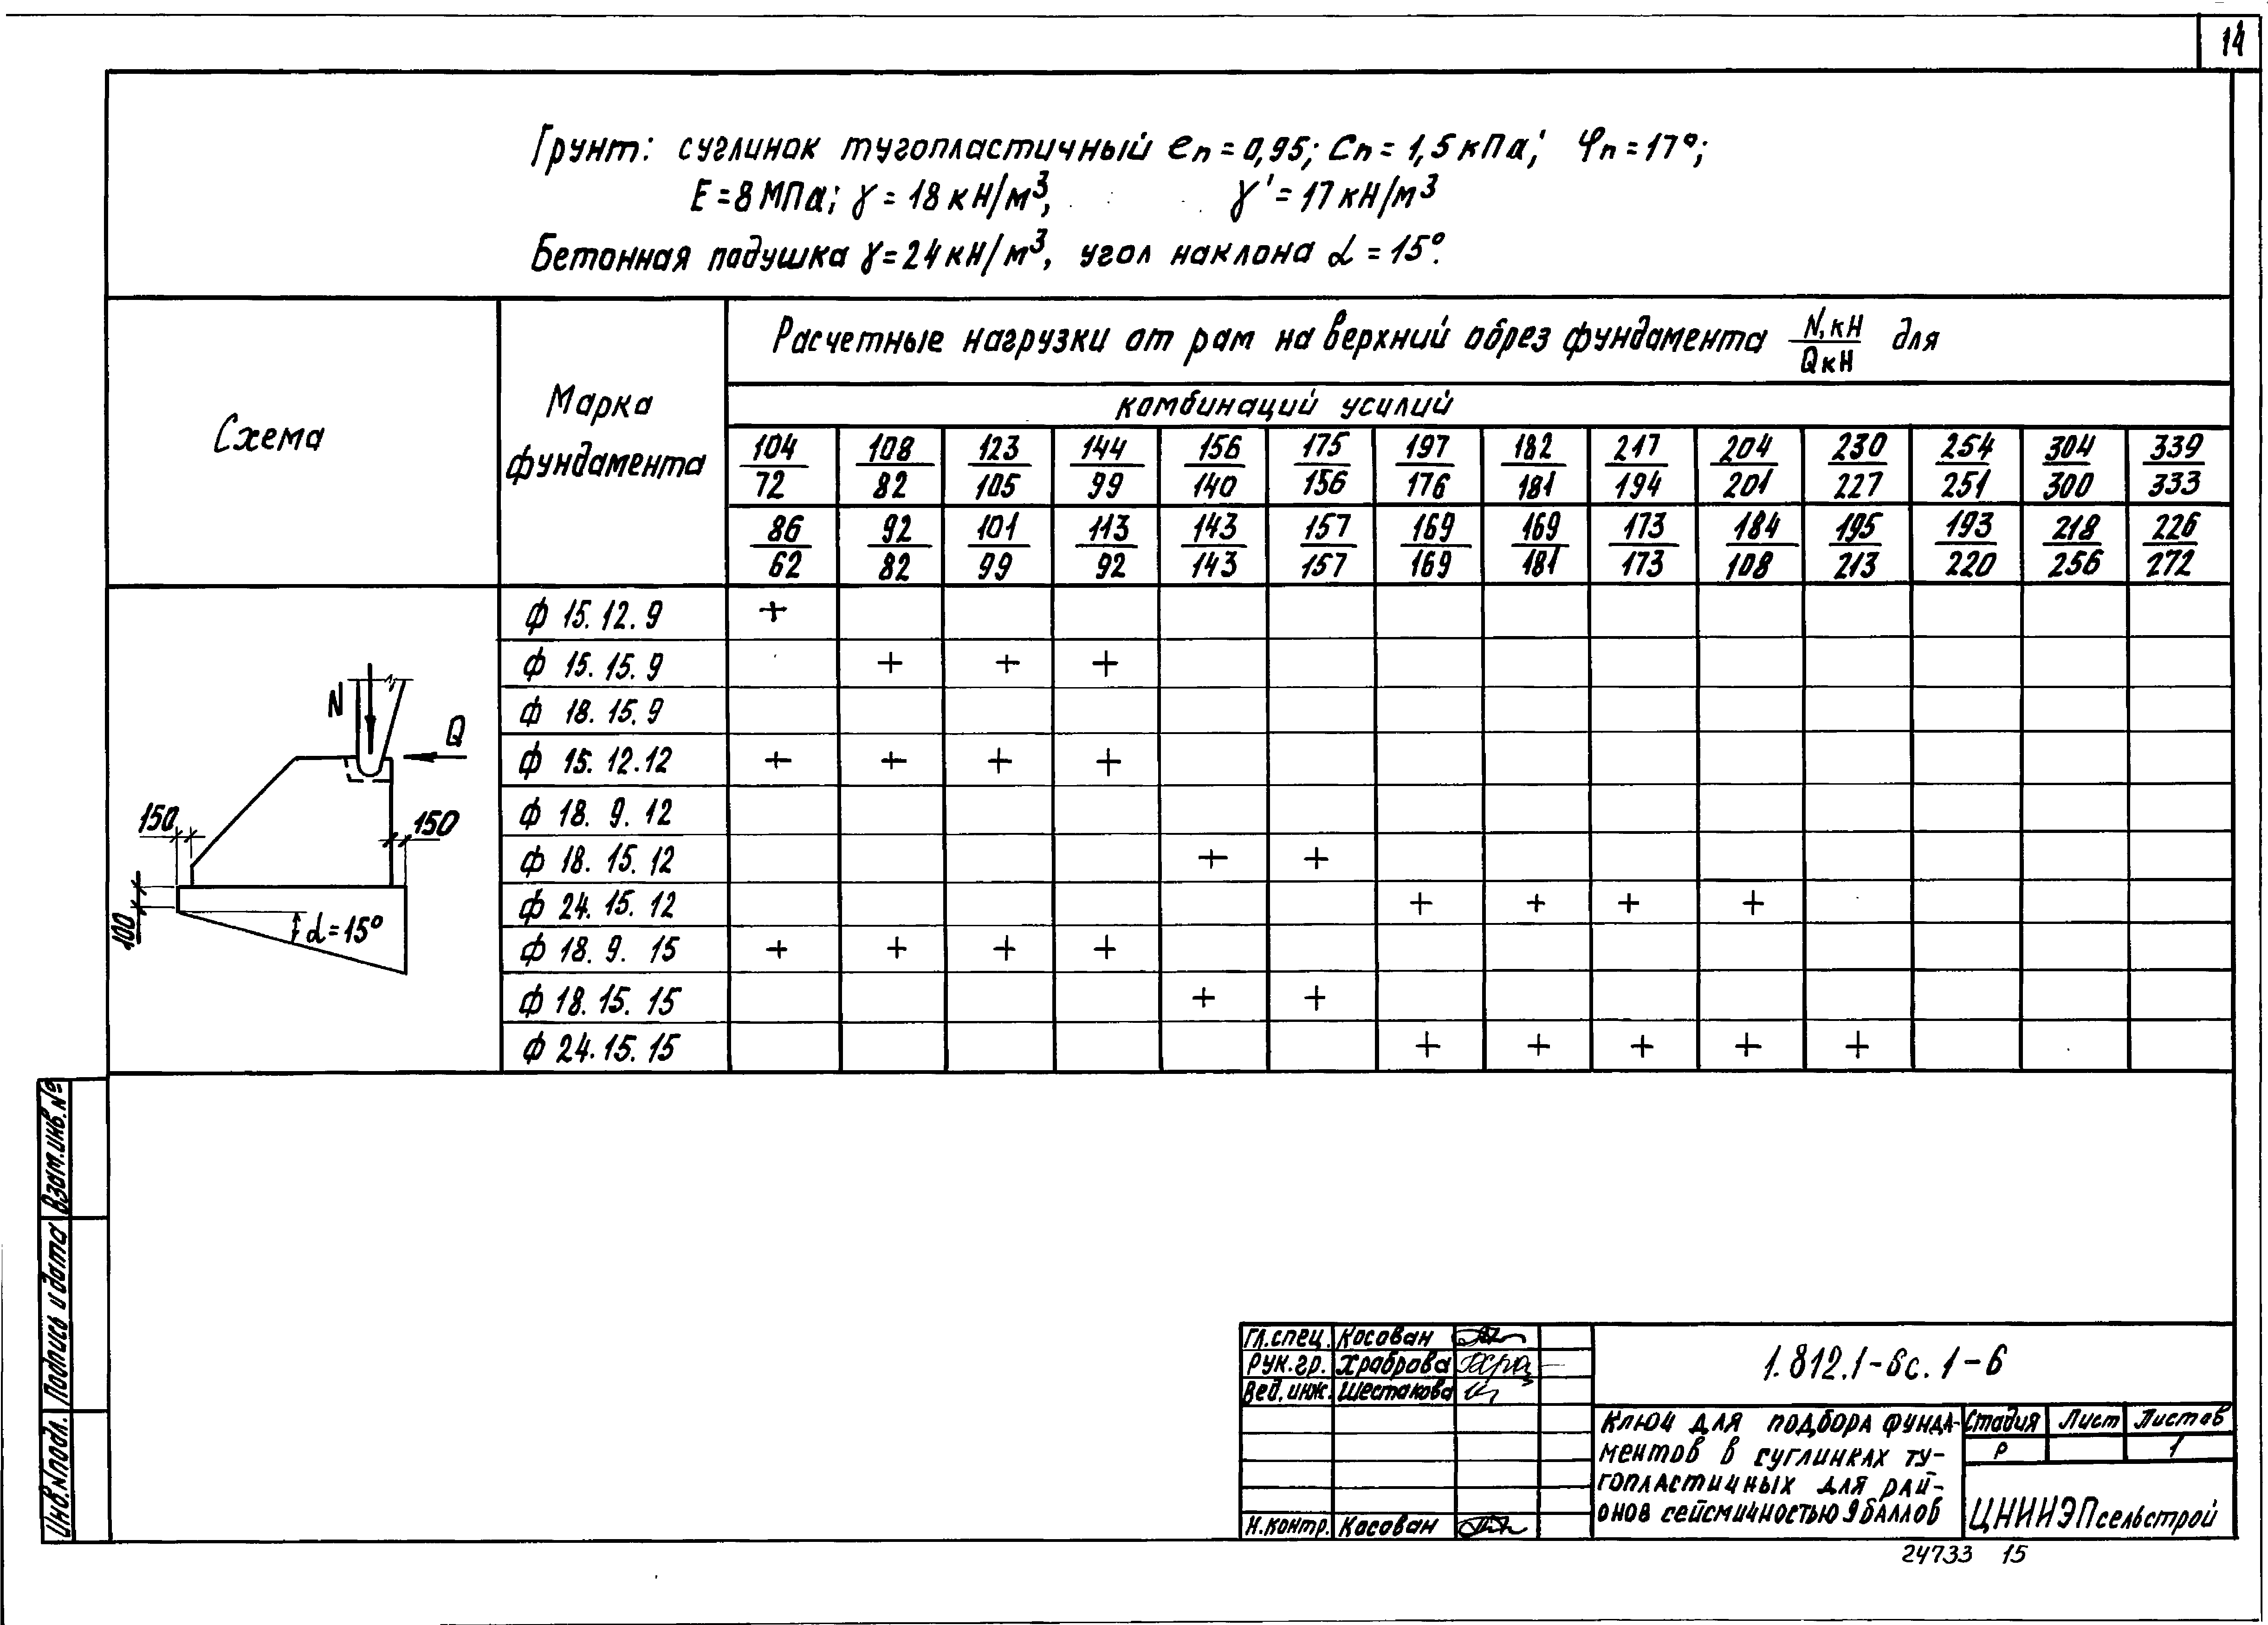 14
Грунт: суглинок тугопластичный eп = 0,95; Cп = 1,5 кПа; φп = 17°;
E = 8 МПа; γ = 18 кН/м³, γ' = 17 кН/м³
Бетонная подушка γ = 24 кН/м³, угол наклона α = 15°.
Схема
Марка фундамента
Расчетные нагрузки от рам на верхний обрез фундамента N,кН / QкН для
комбинаций усилий
104/72 108/82 123/105 144/99 156/140 175/156 197/176 182/181 217/194 204/201 230/227 254/251 304/300 339/333
86/62 92/82 101/99 113/92 143/143 157/157 169/169 169/181 173/173 184/108 195/213 193/220 218/256 226/272
ф 15. 12. 9 +
ф 15. 15. 9 + + +
ф 18. 15. 9
ф 15. 12. 12 + + + +
ф 18. 9. 12
ф 18. 15. 12 + +
ф 24. 15. 12 + + + +
ф 18. 9. 15 + + + +
ф 18. 15. 15 + +
ф 24. 15. 15 + + + + +
N
Q
150
150
100
α = 15°
Взам.инв.№
Подпись и дата
Инв.№подл.
Гл.спец. Косован
Рук.гр. Храброва
Вед.инж. Шестакова
Н.контр. Косован
1.812.1-6с. 1-6
Ключ для подбора фунда-
ментов в суглинках ту-
гопластичных для рай-
онов сейсмичностью 9 баллов
Стадия Лист Листов
Р 1
ЦНИИЭПсельстрой
24733 15